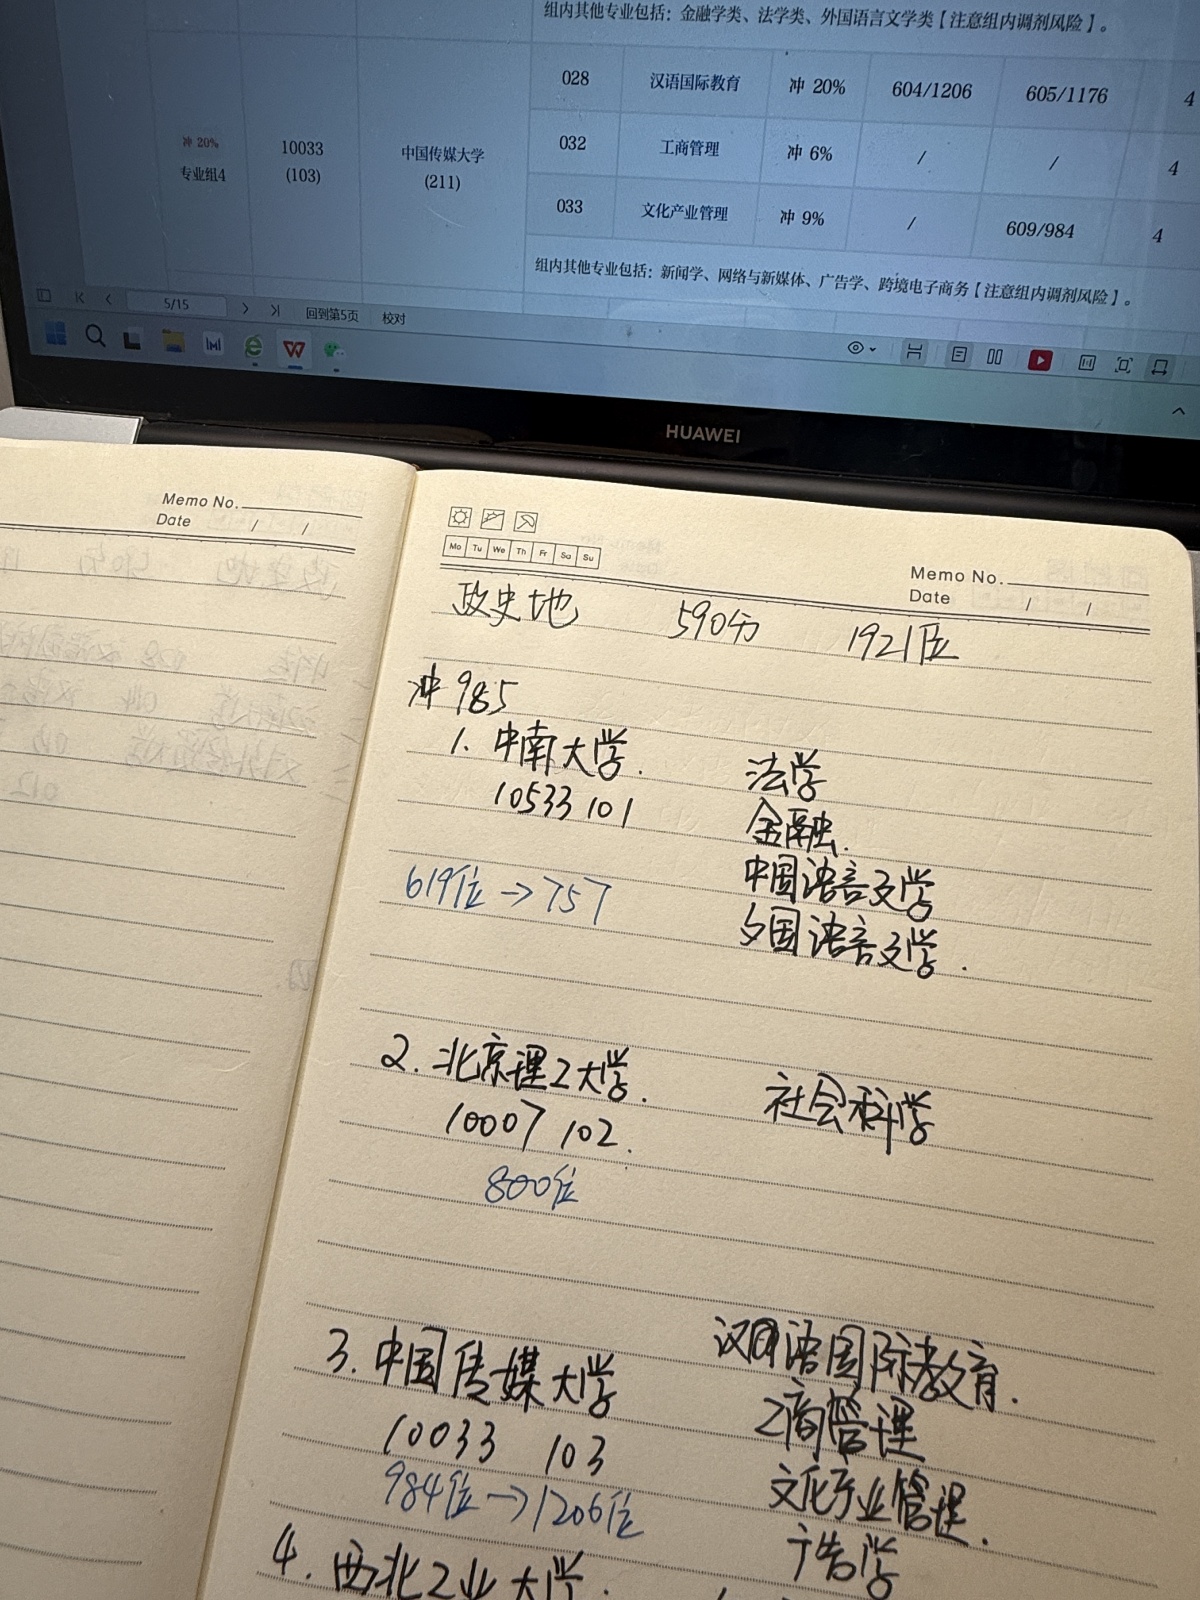 组内其他专业包括：金融学类、法学类、外国语言文学类【注意组内调剂风险】。
028 汉语国际教育 冲 20% 604/1206 605/1176 4
冲 20% 专业组4 10033 (103) 中国传媒大学 (211) 032 工商管理 冲 6% / / 4
033 文化产业管理 冲 9% / 609/984 4
组内其他专业包括：新闻学、网络与新媒体、广告学、跨境电子商务【注意组内调剂风险】。
5/15 回到第5页 校对
HUAWEI
Memo No.
Date / /
Mo Tu We Th Fr Sa Su
Memo No.
Date / /
政史地 590分 1921位
冲985
1. 中南大学. 法学
10533 101 金融.
619位→757 中国语言文学
外国语言文学.
2. 北京理工大学. 社会科学
10007 102.
800位
3. 中国传媒大学 汉语国际教育.
10033 103 工商管理
984位→1206位 文化产业管理.
广告学
4. 西北工业大学.